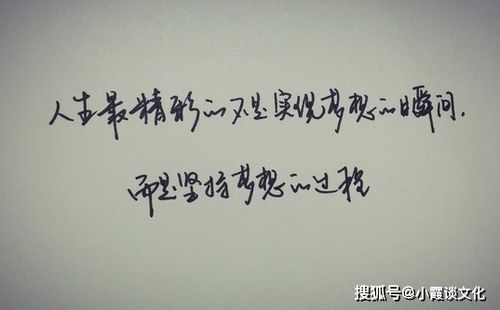 人生最精彩的不是实现梦想的瞬间，
而是坚持梦想的过程
搜狐号@小霞谈文化